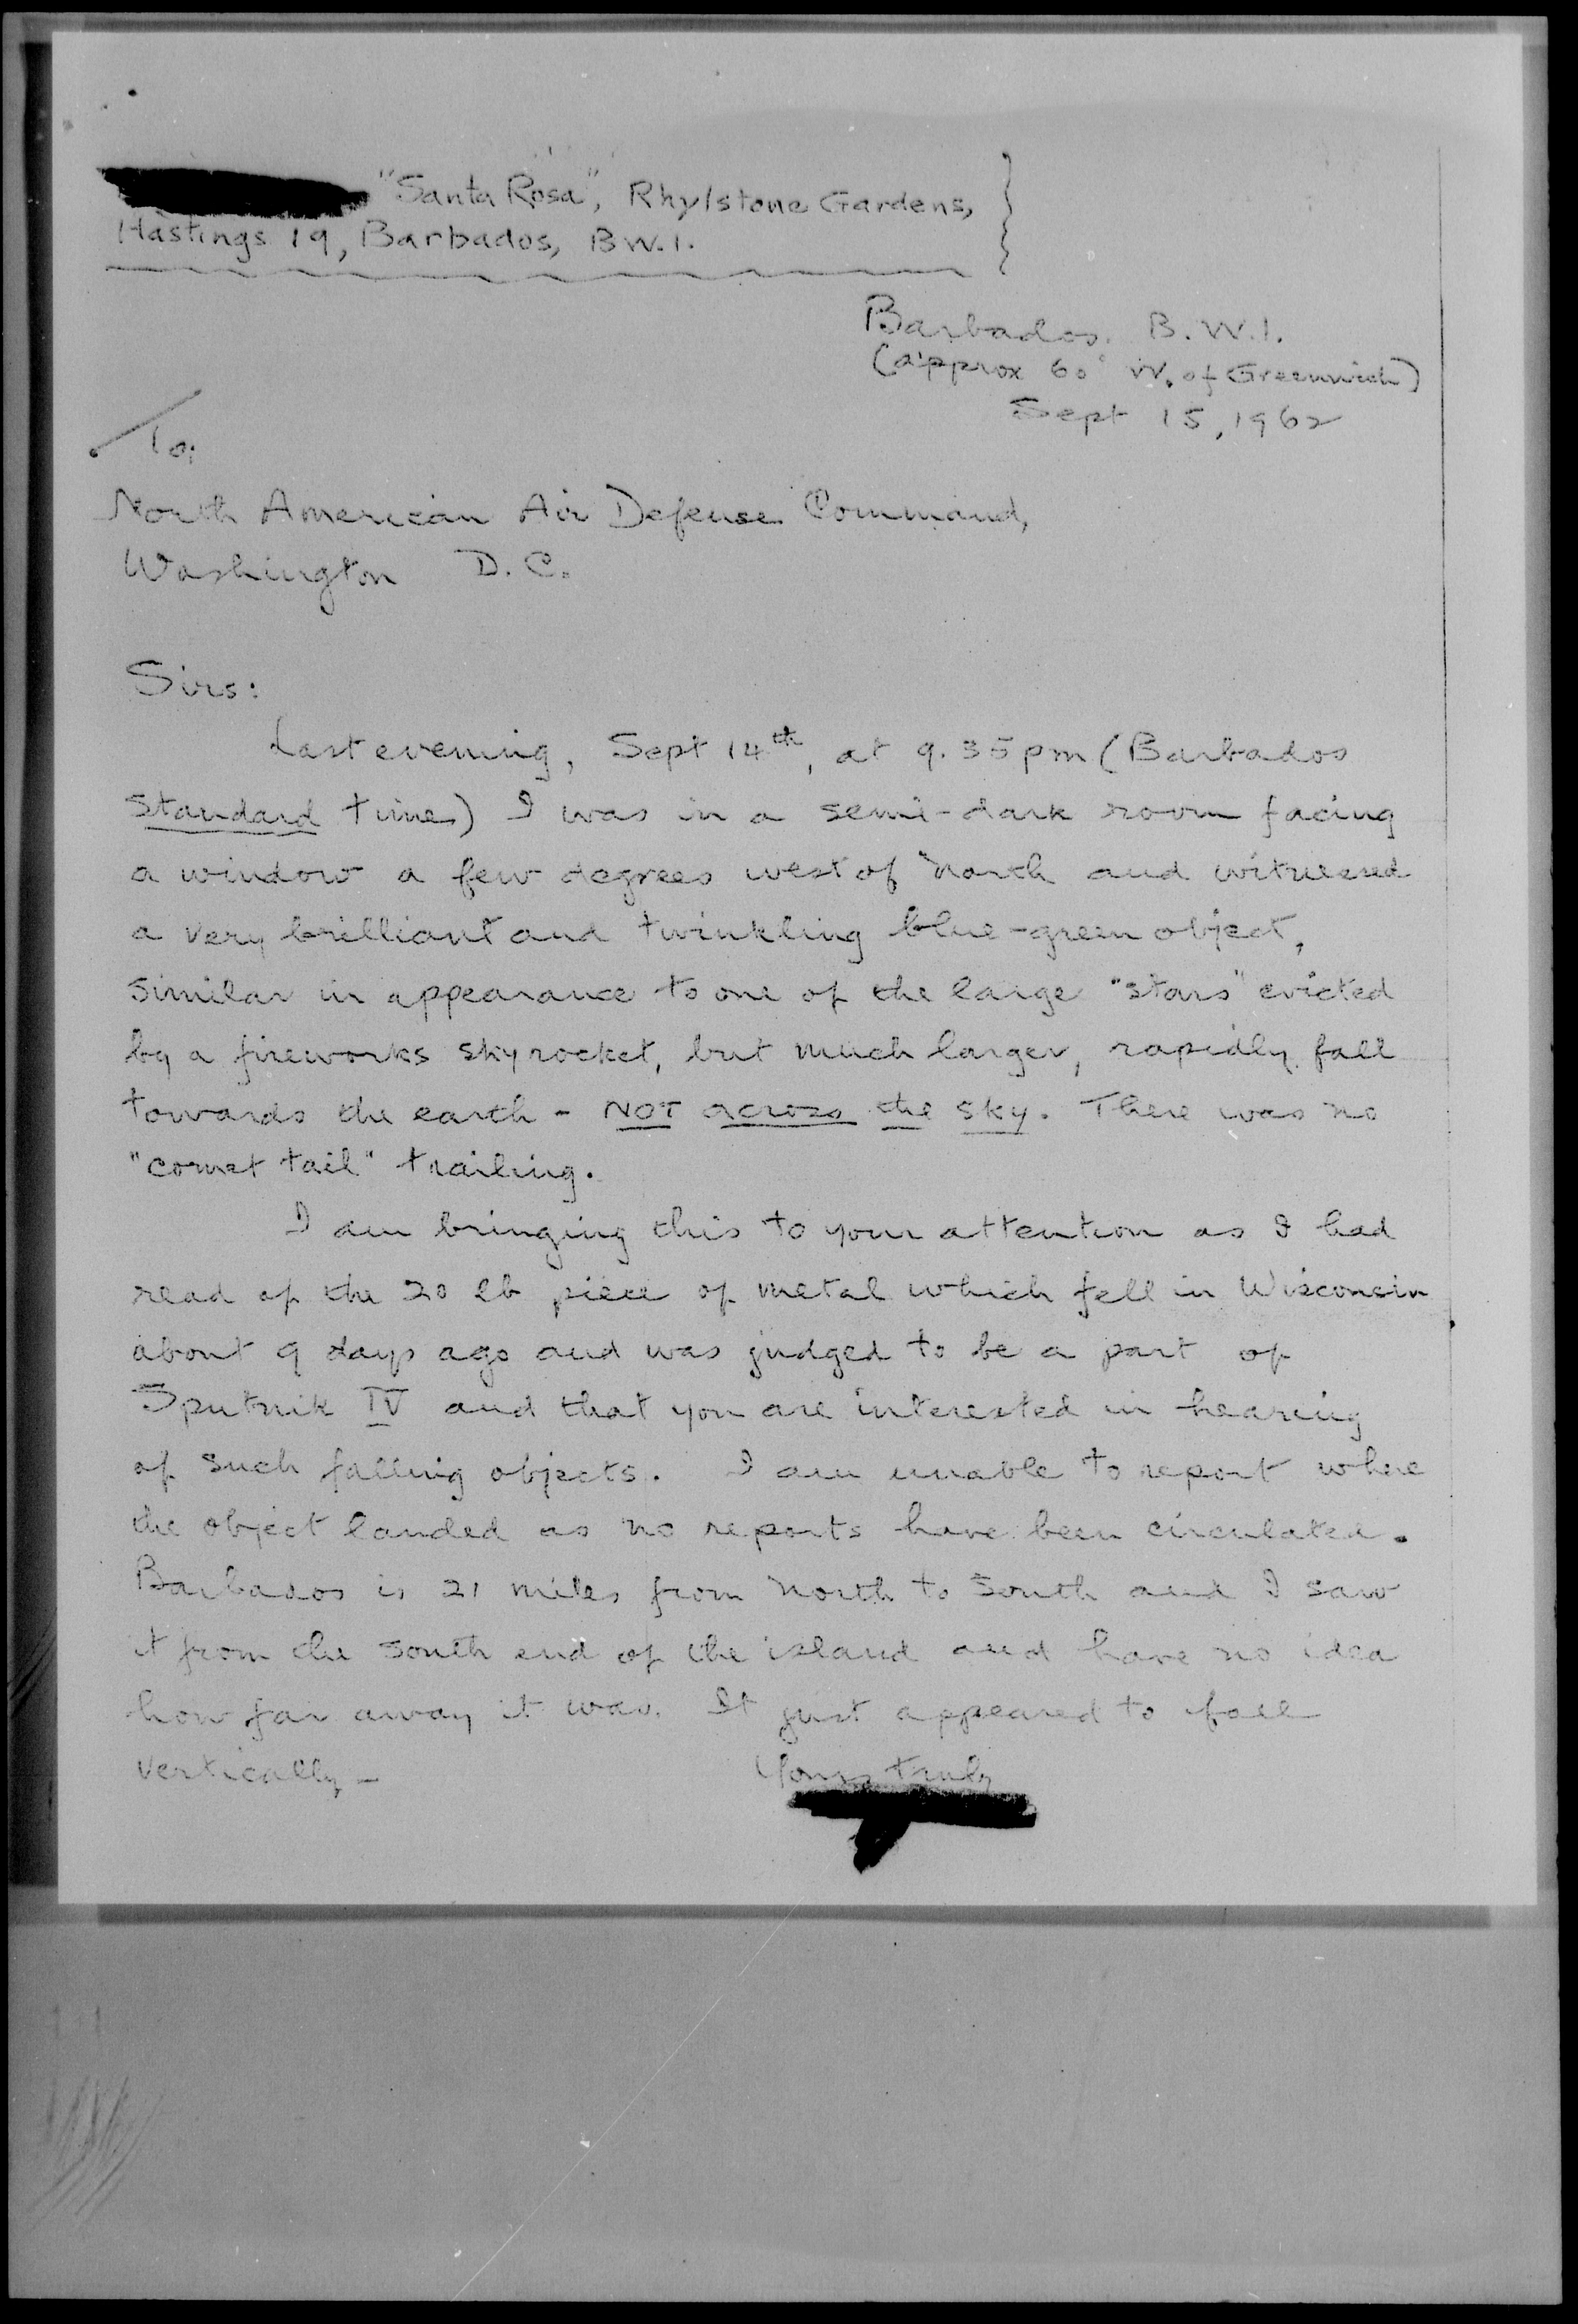 "Santa Rosa", Rhylstone Gardens,
Hastings 19, Barbados, B.W.I.
Barbados. B.W.I.
(approx 60° W. of Greenwich)
Sept 15, 1962
To:
North American Air Defense Command,
Washington D.C.
Sirs:
Last evening, Sept 14th, at 9.35 pm (Barbados
Standard time) I was in a semi-dark room facing
a window a few degrees west of North and witnessed
a very brilliant and twinkling blue-green object,
similar in appearance to one of the large "stars" evicted
by a fireworks skyrocket, but much larger, rapidly fall
towards the earth - NOT across the sky. There was no
"comet tail" trailing.
I am bringing this to your attention as I had
read of the 20 lb piece of metal which fell in Wisconsin
about 9 days ago and was judged to be a part of
Sputnik IV and that you are interested in hearing
of such falling objects. I am unable to report where
the object landed as no reports have been circulated.
Barbados is 21 miles from North to South and I saw
it from the south end of the island and have no idea
how far away it was. It just appeared to fall
vertically -
Yours truly